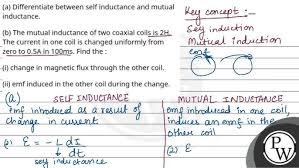 (a) Differentiate between self inductance and mutual
inductance.
(b) The mutual inductance of two coaxial coils is 2H.
The current in one coil is changed uniformly from
zero to 0.5A in 100ms. Find the :
(i) change in magnetic flux through the other coil.
(ii) emf induced in the other coil during the change.
Key concept :-
Self induction
Mutual induction
emf
(a) SELF INDUCTANCE
Emf induced as a result of
change in current
(2) ε = -L dI
dt
self inductance
MUTUAL INDUCTANCE
emf induced in one coil,
induces an emf in the
other coil
(2) ε
PW